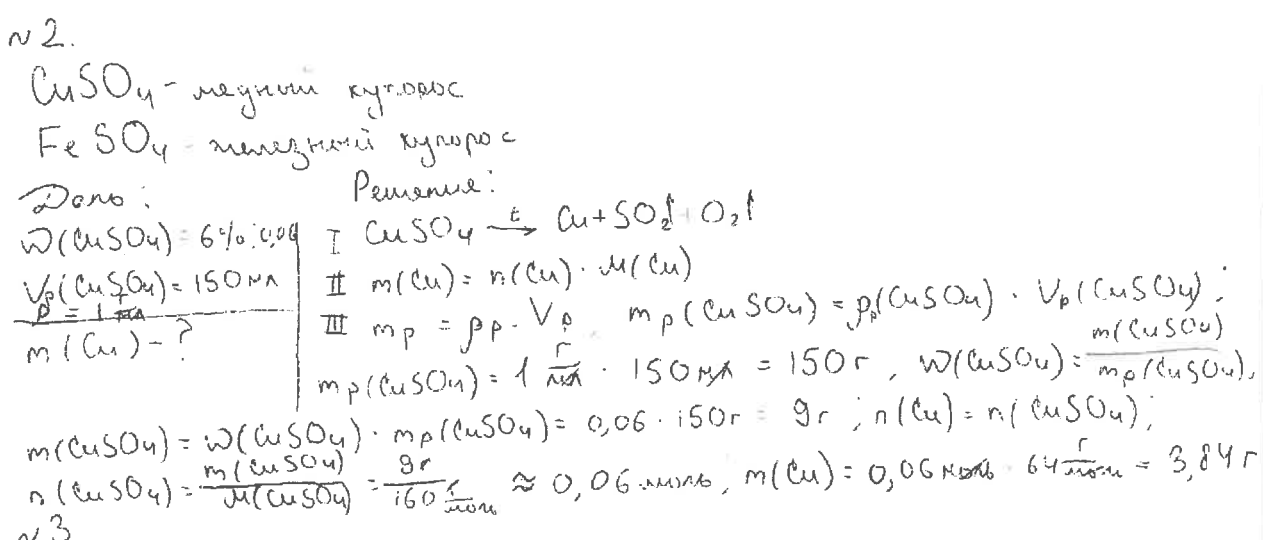 №2.
CuSO₄ - медный купорос
FeSO₄ - железный купорос
Дано:
W(CuSO₄) = 6% = 0,06
Vр(CuSO₄) = 150 мл
ρ = 1 г/мл
m(Cu) - ?
Решение:
I CuSO₄ →(t) Cu + SO₂↑ + O₂↑
II m(Cu) = n(Cu) · M(Cu)
III mр = ρр · Vр mр(CuSO₄) = ρр(CuSO₄) · Vр(CuSO₄);
mр(CuSO₄) = 1 г/мл · 150 мл = 150 г, W(CuSO₄) = m(CuSO₄)/mр(CuSO₄),
m(CuSO₄) = W(CuSO₄) · mр(CuSO₄) = 0,06 · 150 г = 9 г; n(Cu) = n(CuSO₄);
n(CuSO₄) = m(CuSO₄)/M(CuSO₄) = 9 г/160 г/моль ≈ 0,06 моль, m(Cu) = 0,06 моль · 64 г/моль = 3,84 г
№3